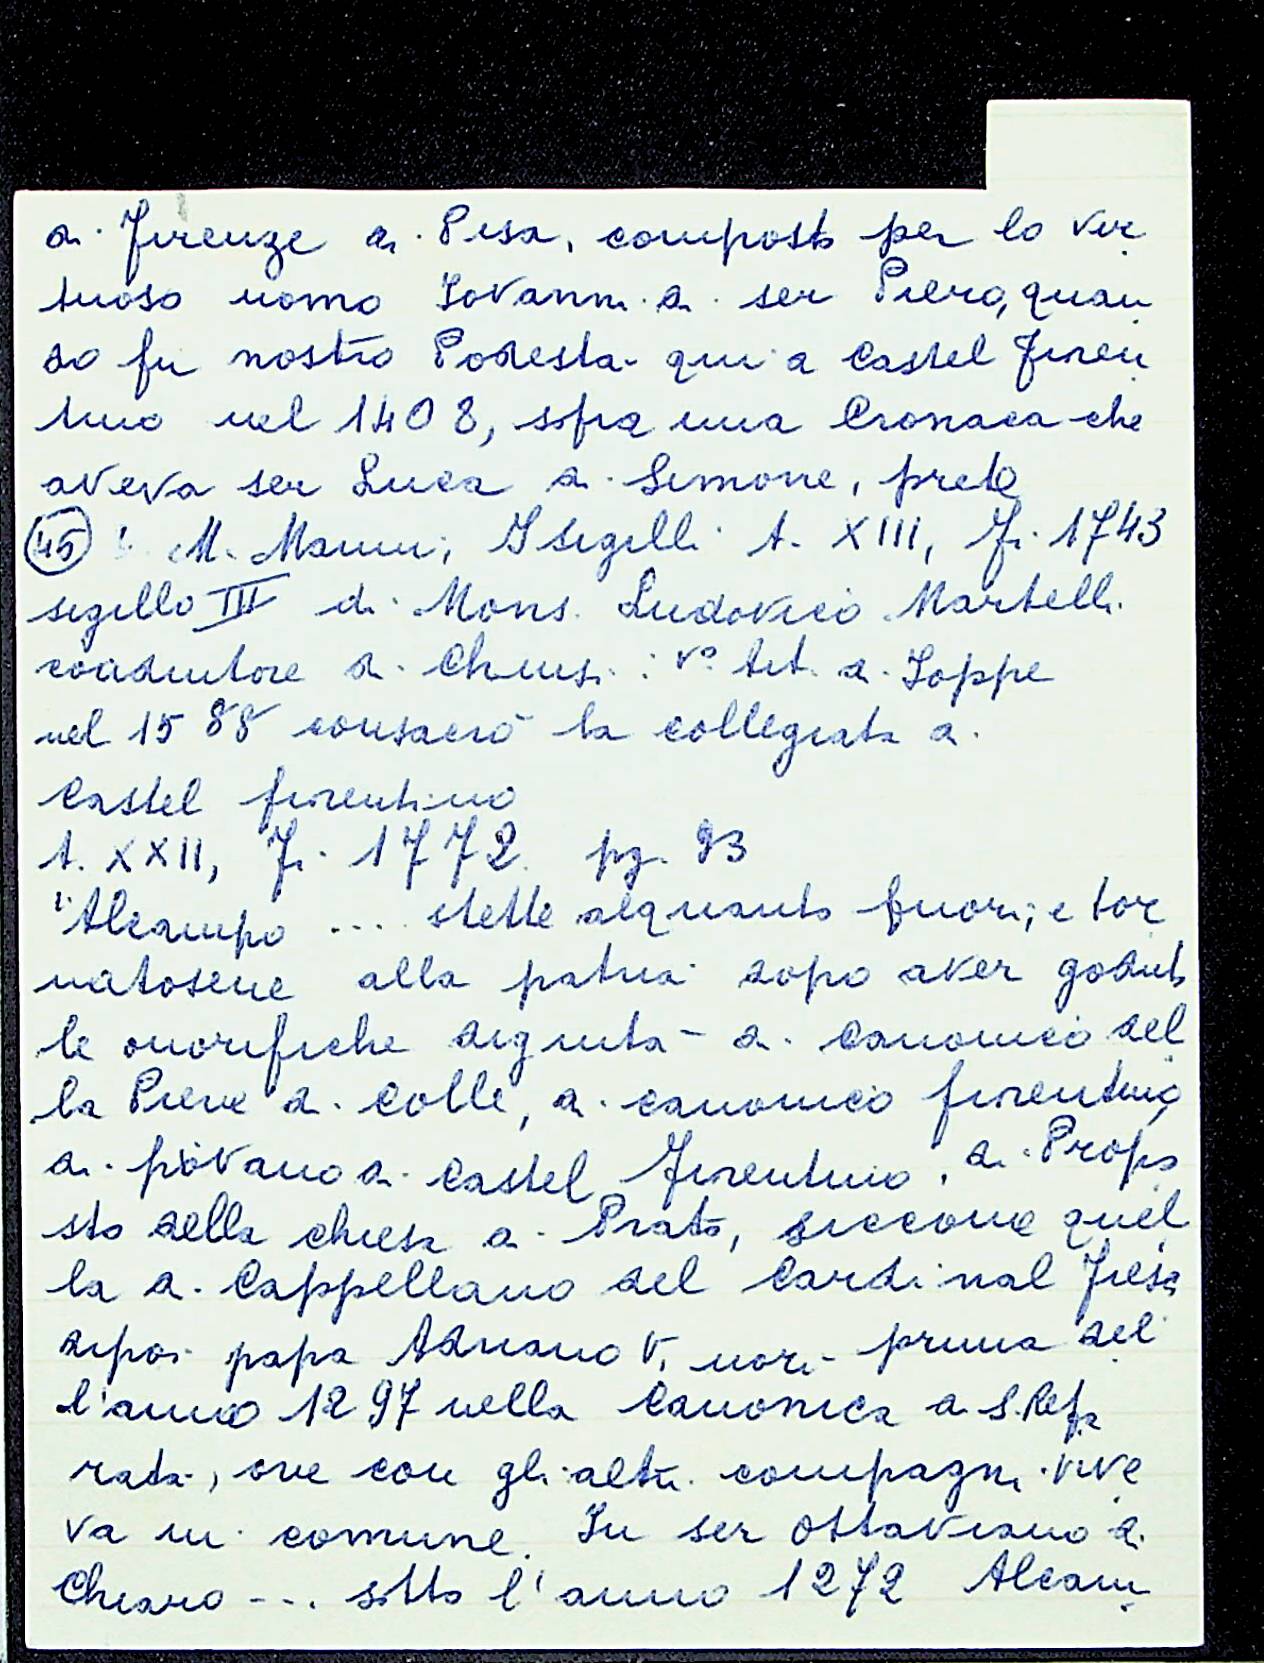 di Firenze di Pisa, composto per lo vir
tuoso uomo Iovanni di ser Piero, quan
do fu nostro Podestà qui a Castel Firen
tino nel 1408, sopra una Cronaca che
aveva ser Luca di Simone, prete
(45) M. Manni, I sigilli t. XIII, Fi. 1743
sigillo III di Mons. Ludovico Martelli
coadiutore di Chiusi: vo tit. di Ioppe
nel 1588 consacrò la collegiata di
Castel fiorentino
t. XXII, Fi. 1772 pg. 93
"Alcampo .... stette alquanto fuori; e tor
natosene alla patria dopo aver goduto
le onorifiche dignità di canonico del
la Pieve di Colle, di canonico fiorentino,
di piovano di Castel Fiorentino, di Propo
sto della chiesa di Prato, siccome quel
la di Cappellano del Cardinal Fieschi
dipoi papa Adriano V, morì prima del
l'anno 1297 nella Canonica di S. Repa
rata, ove con gli altri compagni vive
va in comune. In ser Ottaviano di
Chiaro --- sotto l'anno 1272 Alcam